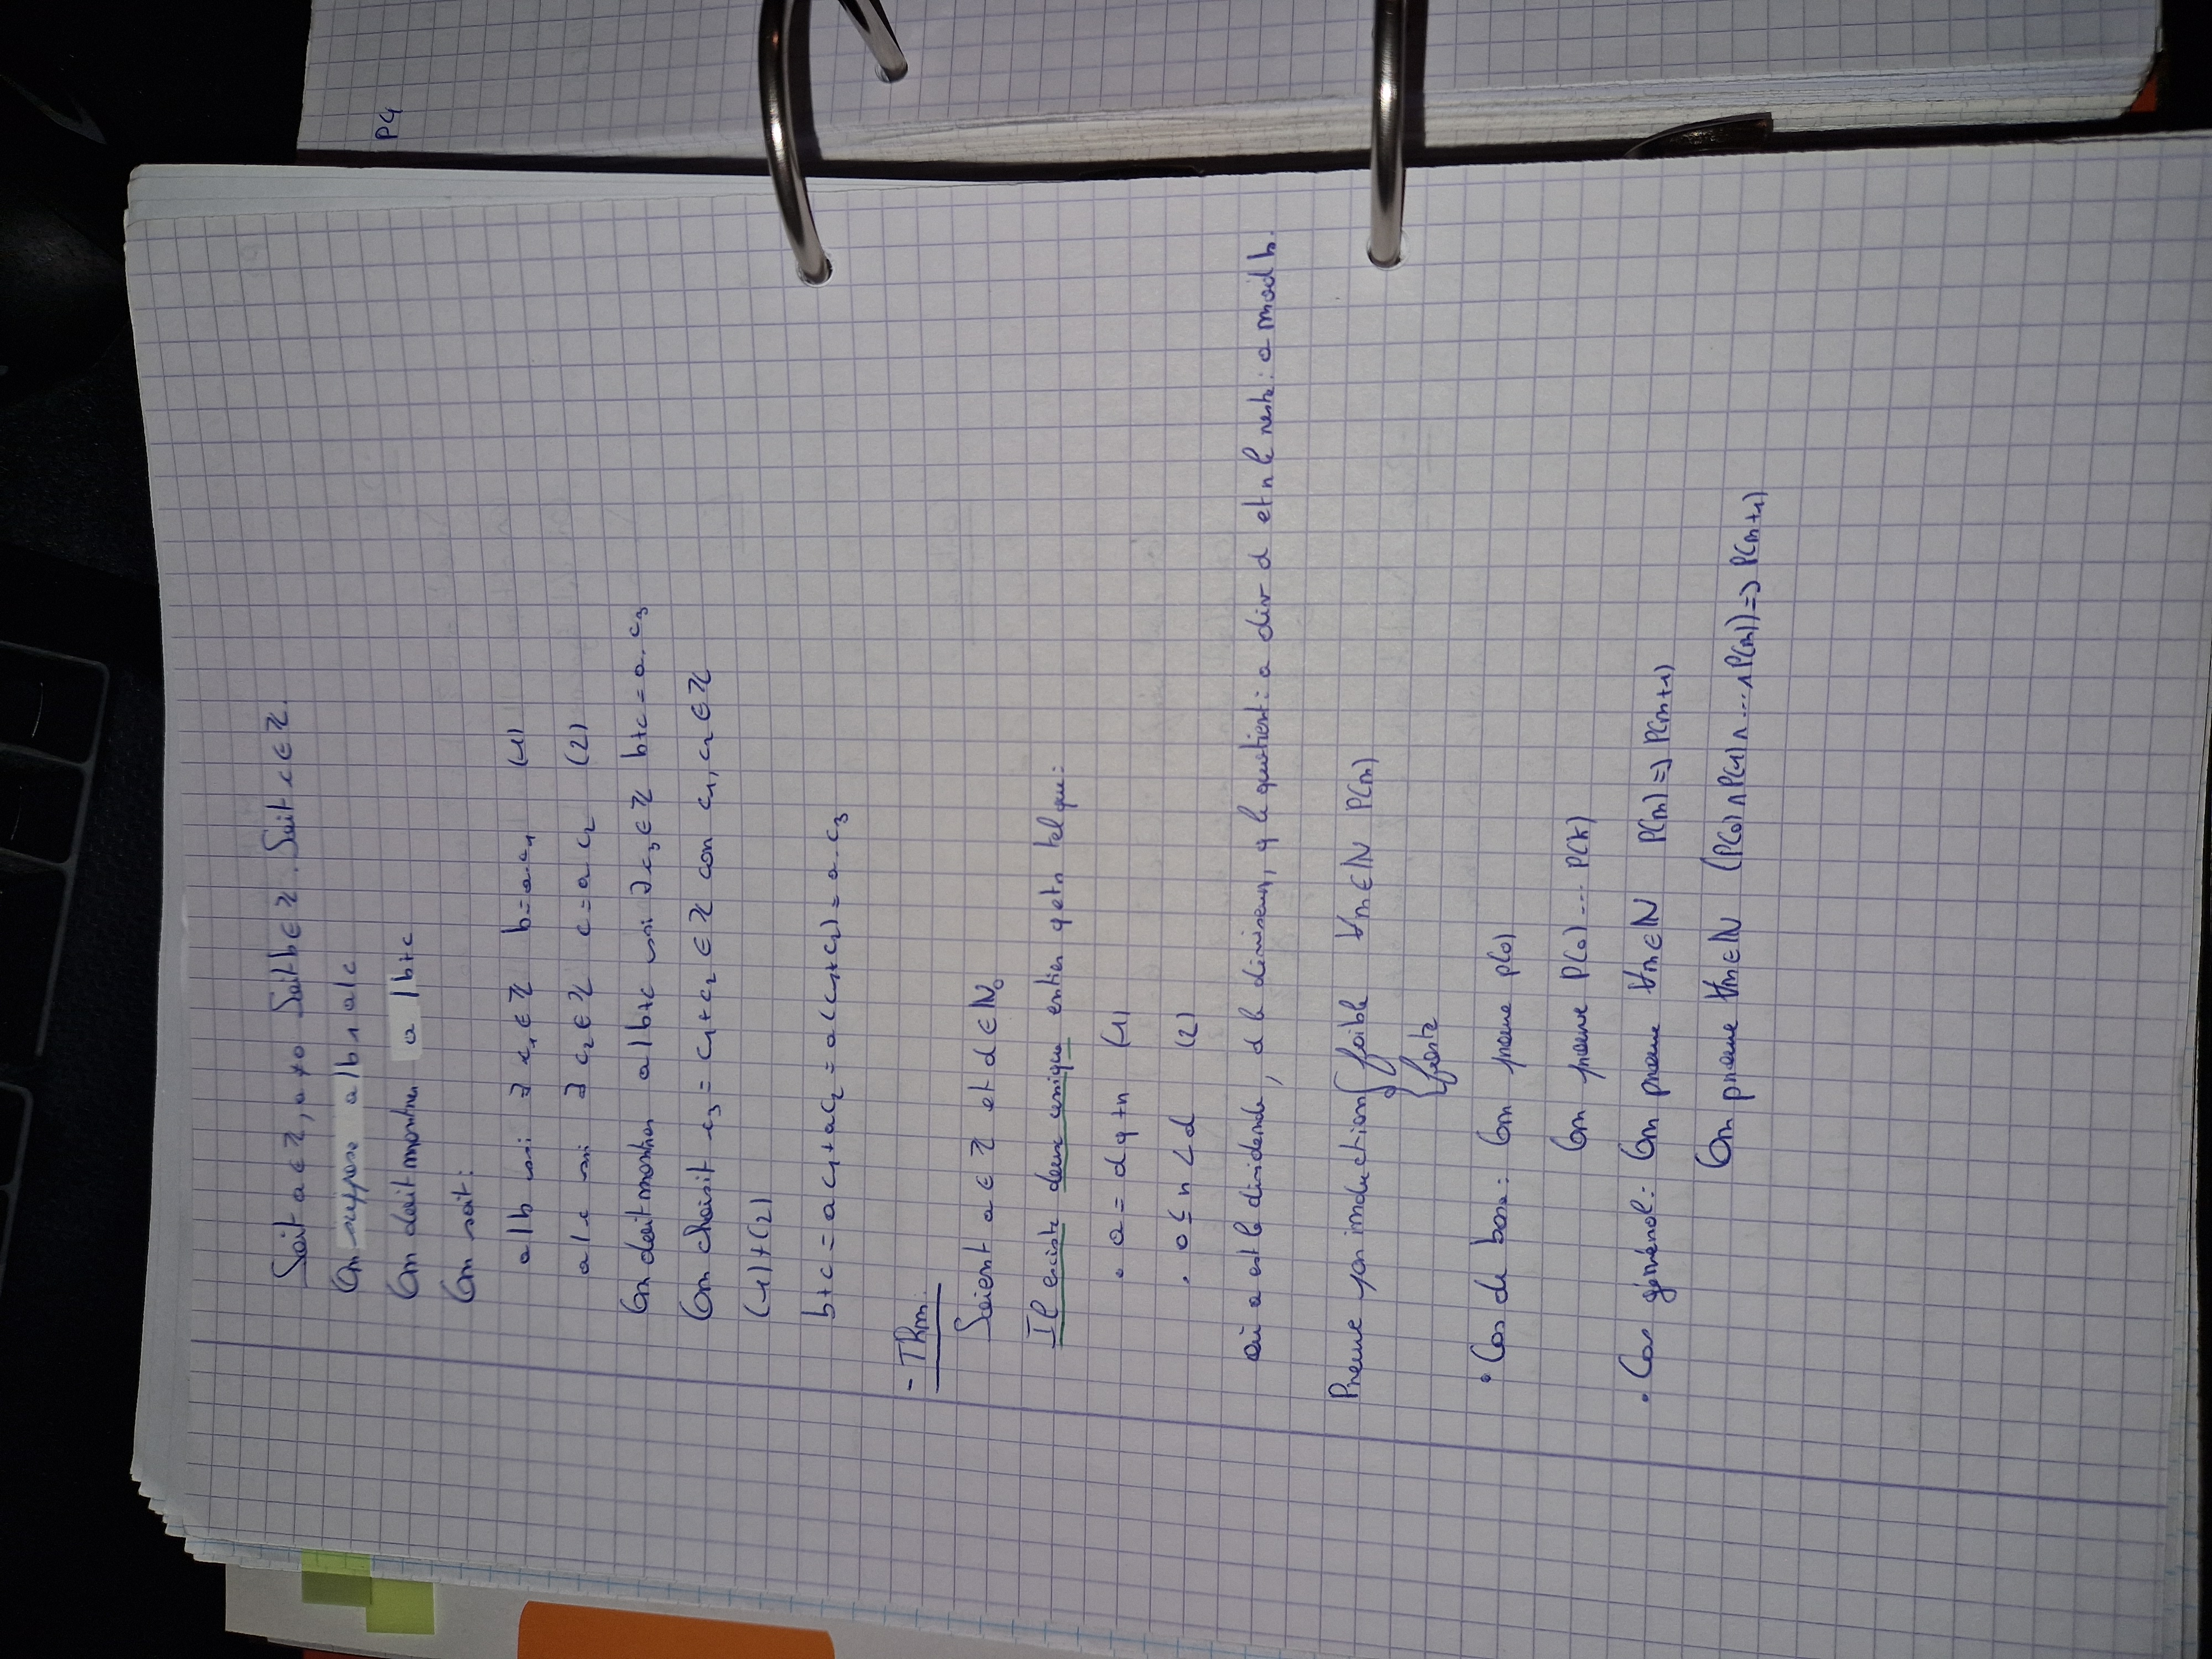 Soit a ∈ ℤ, a ≠ 0 Soit b ∈ ℤ. Soit c ∈ ℤ.
On suppose a | b ∧ a | c
On doit montrer a | b+c
On sait :
a | b ssi ∃ c₁ ∈ ℤ b = a.c₁ (1)
a | c ssi ∃ c₂ ∈ ℤ c = a.c₂ (2)
On doit montrer a | b+c ssi ∃ c₃ ∈ ℤ b+c = a.c₃
On choisit c₃ = c₁+c₂ ∈ ℤ car c₁, c₂ ∈ ℤ
(1)+(2)
b+c = ac₁+ac₂ = a(c₁+c₂) = a.c₃
- Thm:
Soient a ∈ ℤ et d ∈ ℕ₀
Il existe deux unique entier q et r tel que :
• a = dq+r (1)
• 0 ≤ r < d (2)
où a est le dividende, d le diviseur, q le quotient : a div d et r le reste : a mod b.
Preuve par induction { faible ∀n ∈ ℕ P(n)
{ forte
• Cas de base : On prouve p(0)
On prouve P(0) ... P(k)
• Cas général : On prouve ∀n ∈ ℕ P(n) => P(n+1)
On prouve ∀n ∈ ℕ (P(0) ∧ P(1) ∧ ... ∧ P(n)) => P(n+1)
P4